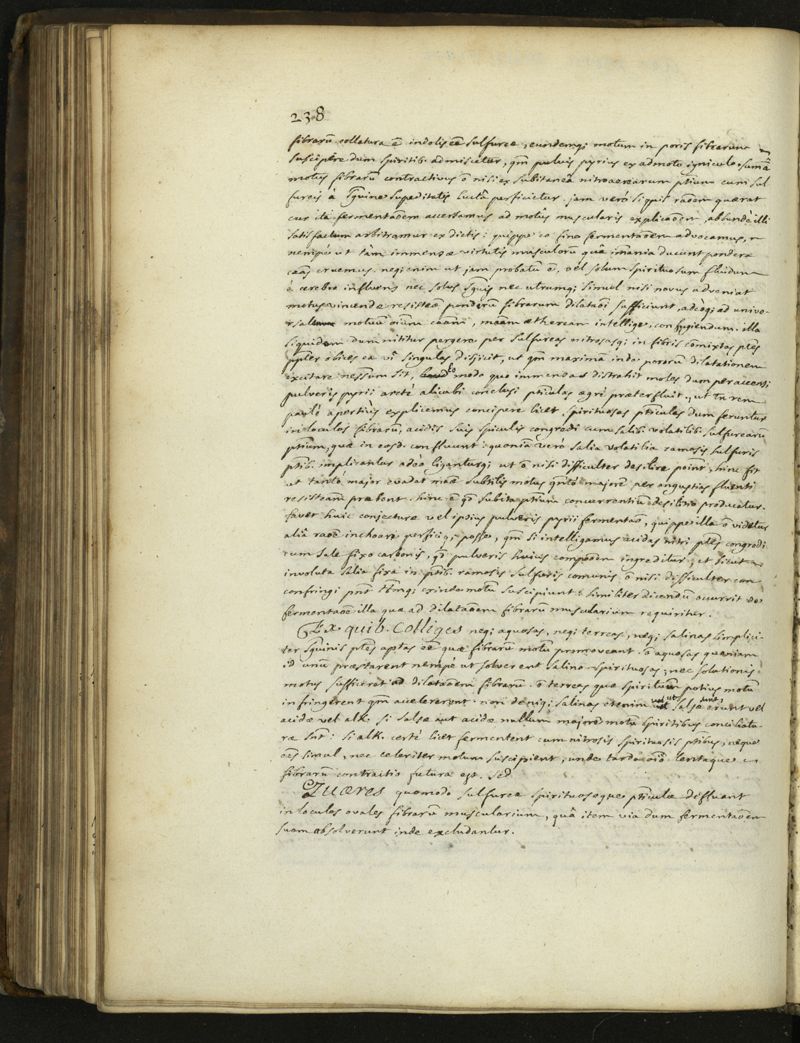 238
fibrarū collatura ē indolisēe sulfurea, eundemq; motum in poris fibrarum
suscipere dum spiritib admiscetur, qm̄ pulvis pyrius ex admoto igniculo. sum̄ā
motus fibrarū contractivus ō nisi ex subitaneâ nitroaerearum ptium cum sul
fureis à sḡuine suppeditatis luctâ perficietur. jam verò si quis raōem quaerat
cur ita fermentaōem accersamus ad motûs muscularis explicaōem, abundè illi
satisfactum arbitramur ex dictis: quippe eo sine fermentaōem advocamus,
nempe ut tàm immensae virtutis musculorū quâ im̄ania ducunt pondera
caām eruemus. neq; enim ut jam probatū ē, vel solum spirituosum fluidum
è cerebro influens nec solus sḡuis nec utrumq; simul nisi novus adveniat
motus vincendae resistaē ponderū fibrarum dilataōi sufficiunt, adeoq; ad unive-
rsalem motuū oīum caām, mām aetheream intellige, confugiendum. illa
siquidem dum nititur pergere per sulfureas nitrosasq; in fibris comixtas ptes
ppter obices ea vi singulas disjicit, ut qm̄ maxima inde pororū dilatationem
excitare nessum sit, eo modo quo immensas distrahit moles dum per accensi
pulveris pyrii arctè alicubi conclusi pticulas agri praeterfluit. ut tn̄ rem
paulò apertius explicemus concipere licet, spirituosas pticulas dum feruntur
in loculos fibrarū, acidis suis spiculis congredi cum salib volatilib sulfurearū
ptium, quae in eosd. confluunt: quoniā verò salia volatilia ramosis sulfuris
ptib. implicantur adeò liganturq; ut ō nisi difficulter desilire point, hinc fit
ut tantò major evadat māe subtilis motus quātò majorē per angustias fluenti
resistaām praebent. hinc ē qō subita ptium concurrentiū desilitio producatur.
favet huic conjecturae vel ipsius pulveris pyrii fermentaō, quippe illa ō videtur
aliâ raōe inchoare perficiq; posse, qm̄ si intelligamus acidas nitri ptes congredi
cum sale fixo carbonis, qō pulveris huius compōem ingreditur, et sicut
involuta salia fixa in ptib. ramosis sulfuris comunis ō nisi difficulter con
confringi pnt̄ itaq; exinde motū suscipiunt: similiter dicendū occurrit de
fermentaōe illa quae ad dilataōem fibrarū muscularium requiritur.
Ex quib. Colliges neq; aquosas, neq; terreas, neq; salinas simplici-
ter sḡuinis ptes aptas eē quae fibrarū motū promoveant. ō aquosas quoniam
id unū praestarent nempè ut solverent salino-spirituosas; nec solationis
motus sufficeret ad dilataōem fibrarū. ō terreas quae spirituum potius motū
infringerent qm̄ accelererent. non deniq; salinas etenim vel ut salsae erunt sunt vel
acidae vel alk. si salsae aut acidae nullum majorē motū spiritibus conciliatu-
rae snt̄: si alk. certè licet fermentent cum nitrosis spirituosis ptibus, neque
oēs simul, nec celeriter motum suscipient, unde tarda oīō lentaque
fibrarū contractio futura eēt. sed
Quaeres quomodo sulfureae spirituosaeque pticulae diffluant
in loculos ovales fibrarū muscularium, quâ item via dum fermentaōem
suam absolverunt inde excludantur.